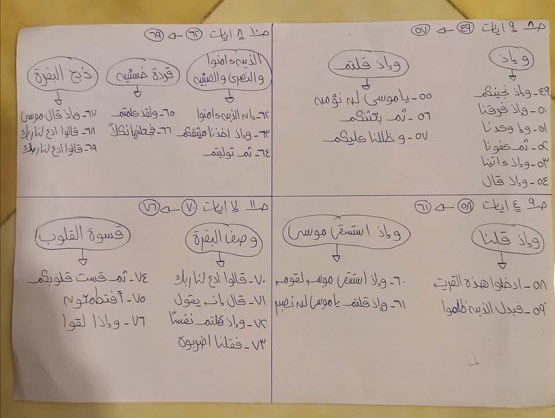 ص ٨ ٩ آيات ٤٩ ← ٥٧
وإذ
٤٩- وإذ نجينكم
٥٠- وإذ فرقنا
٥١- وإذ وعدنا
٥٢- ثم عفونا
٥٣- وإذ ءاتينا
٥٤- وإذ قال
وإذ قلتم
٥٥- يا موسى لن نؤمن
٥٦- ثم بعثنكم
٥٧- وظللنا عليكم
ص ٩ ٤ آيات ٥٨ ← ٦١
وإذ قلنا
٥٨- ادخلوا هذه القرية
٥٩- فبدل الذين ظلموا
وإذ استسقى موسى
٦٠- وإذ استسقى موسى لقومه
٦١- وإذ قلتم يا موسى لن نصبر
ص ١٠ ٨ آيات ٦٢ ← ٦٩
الذين ءامنوا
والنصرى والصبئين
٦٢- إن الذين ءامنوا
٦٣- وإذ أخذنا ميثقكم
٦٤- ثم توليتم
قردة خسئين
٦٥- ولقد علمتم
٦٦- فجعلنها نكلاً
ذبح البقرة
٦٧- وإذ قال موسى
٦٨- قالوا ادع لنا ربك
٦٩- قالوا ادع لنا ربك
ص ١١ ٧ آيات ٧٠ ← ٧٦
وصف البقرة
٧٠- قالوا ادع لنا ربك
٧١- قال إنه يقول
٧٢- وإذ قتلتم نفسًا
٧٣- فقلنا اضربوه
قسوة القلوب
٧٤- ثم قست قلوبكم
٧٥- أفتطمعون
٧٦- وإذا لقوا